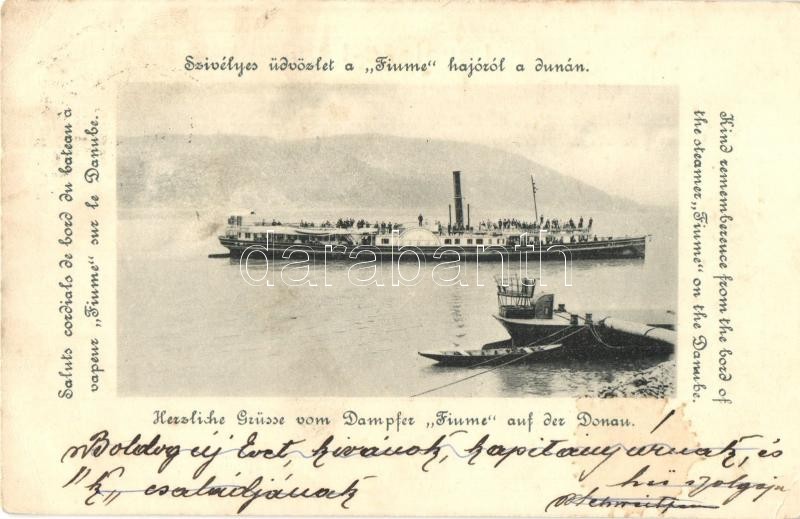 Szivélyes üdvözlet a „Fiume" hajóról a dunán.
Saluts cordials de bord du bateau à
vapeur „Fiume" sur le Danube.
Kind rememberence from the bord of
the steamer „Fiume" on the Danube.
darabanth
Herzliche Grüsse vom Dampfer „Fiume" auf der Donau.
Boldog új Évet, kivánok, kapitány urnak, és
k„ családjának
hű szolgája